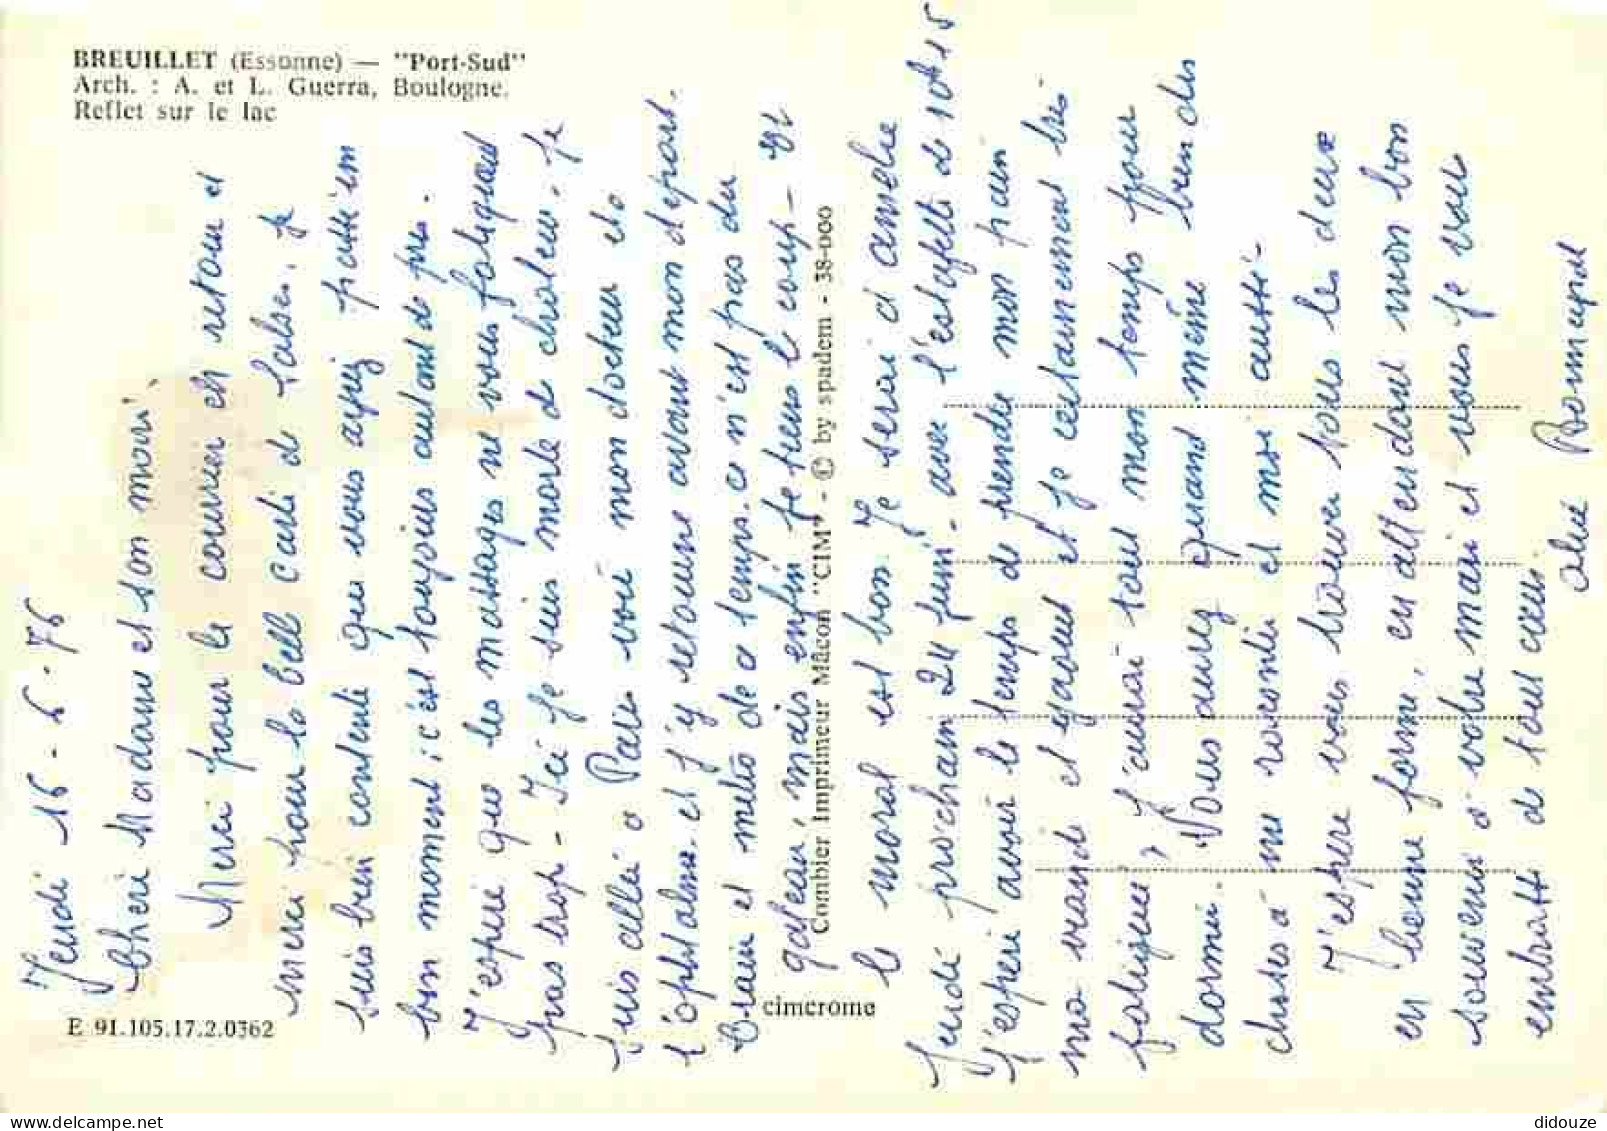 BREUILLET (Essonne) — "Port-Sud"
Arch. : A. et L. Guerra, Boulogne.
Reflet sur le lac
Jeudi 16-6-76
Chère Madame et son mari,
Merci pour le courrier et retour et
merci pour la belle carte de Salses. je
suis bien contente que vous ayez passé un
bon moment, c'est toujours autant de pris.
J'espère que les massages ne vous fatiguent
pas trop - Ici je suis morte de chaleur. je
suis allée à Paris voir mon docteur et
l'ophtalmo. et j'y retourne avant mon départ.
Train et métro de ce temps. ce n'est pas du
gateau, mais enfin je tiens le coup - et
Combier Imprimeur Mâcon "CIM" - © by spadem - 38-000
le moral est bon je serai d'attendre
Jeudi prochain 24 juin - avec l'estafette de 10h15
J'espère avoir le temps de prendre mon pain
ma viande et yaourt et je certainement très
fatiguée, j'aurai tout mon temps pour
dormir. Vous aurez quand même bien des
choses à me raconter et moi aussi -
J'espère vous trouver tous les deux
en bonne forme, en attendant mon bon
souvenir à votre mari et vous je vous
embrasse de tout cœur
cimcrome
E 91.105.17.2.0362
didouze